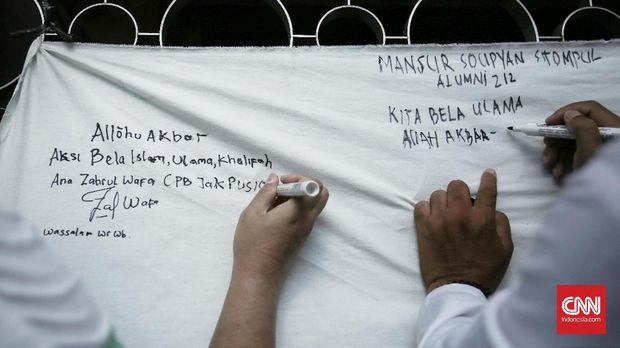 Allōhu Akbar
Aksi Bela Islam, Ulama, Khalifah
Ana Zabrul Wafa CPB Jak Pus
Zal Wafa
Wassalam Wr Wb.
MANSUR SOUPYAN SITOMPUL
ALUMNI 212
KITA BELA ULAMA
ALLAH AKBAR-
CNN
indonesia.com